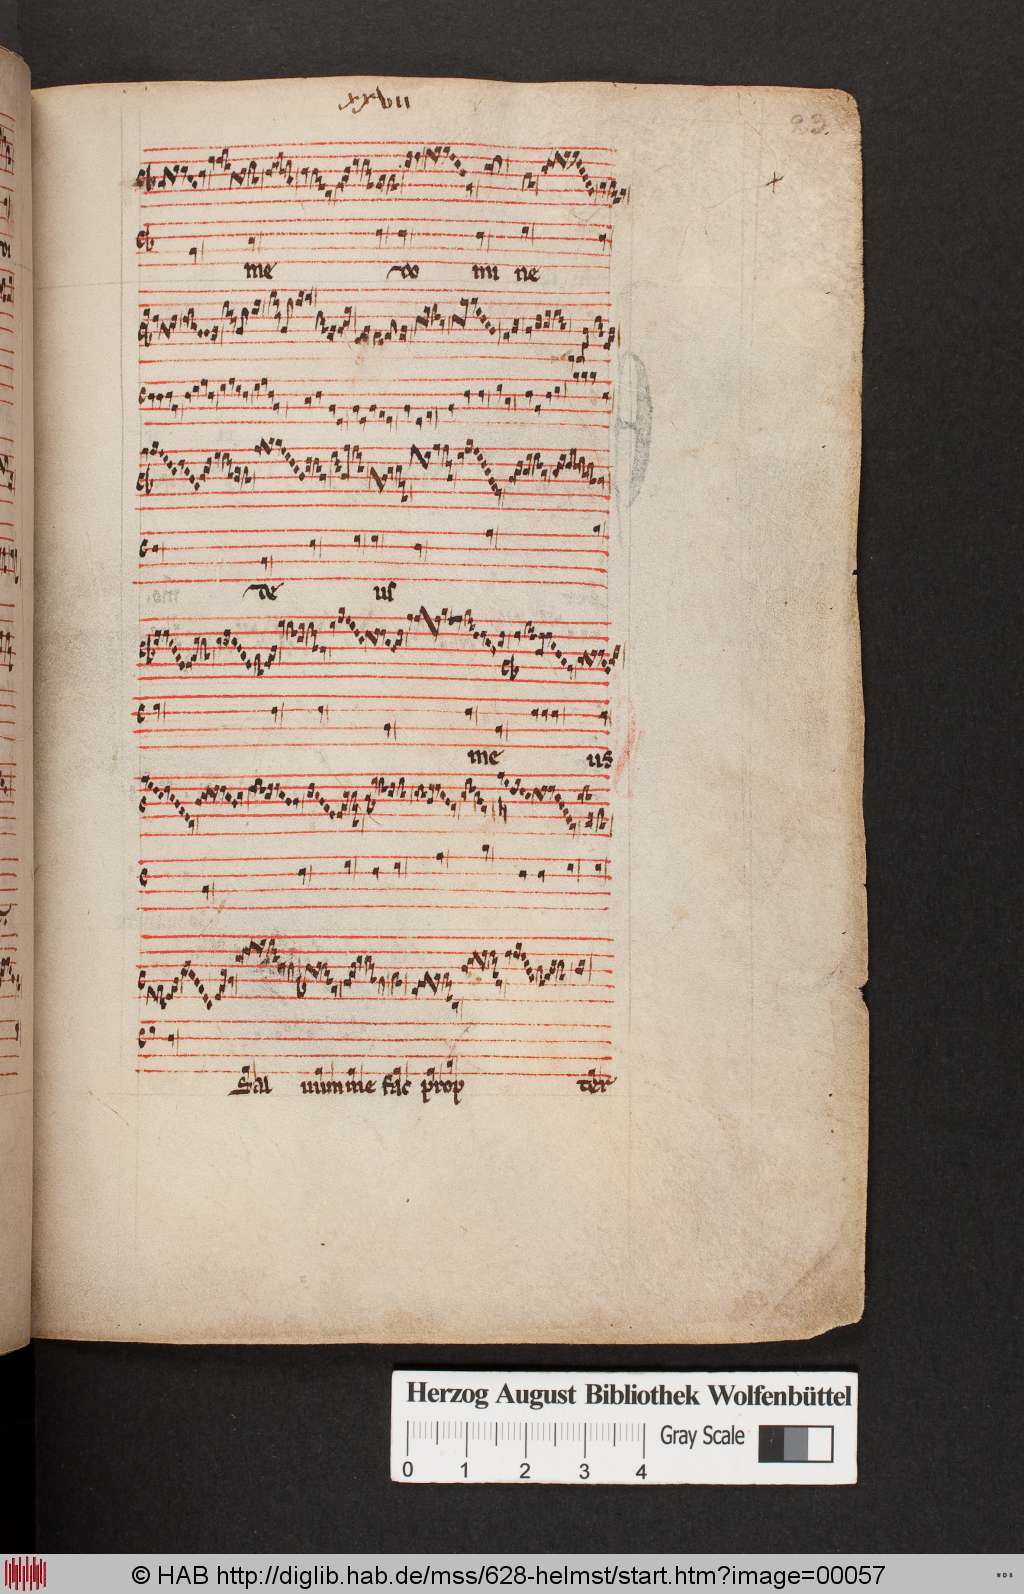 xxvii
23
me do mi ne
de us
me us
Sal uum me fac prop ter
Herzog August Bibliothek Wolfenbüttel
Gray Scale
0 1 2 3 4
© HAB http://diglib.hab.de/mss/628-helmst/start.htm?image=00057